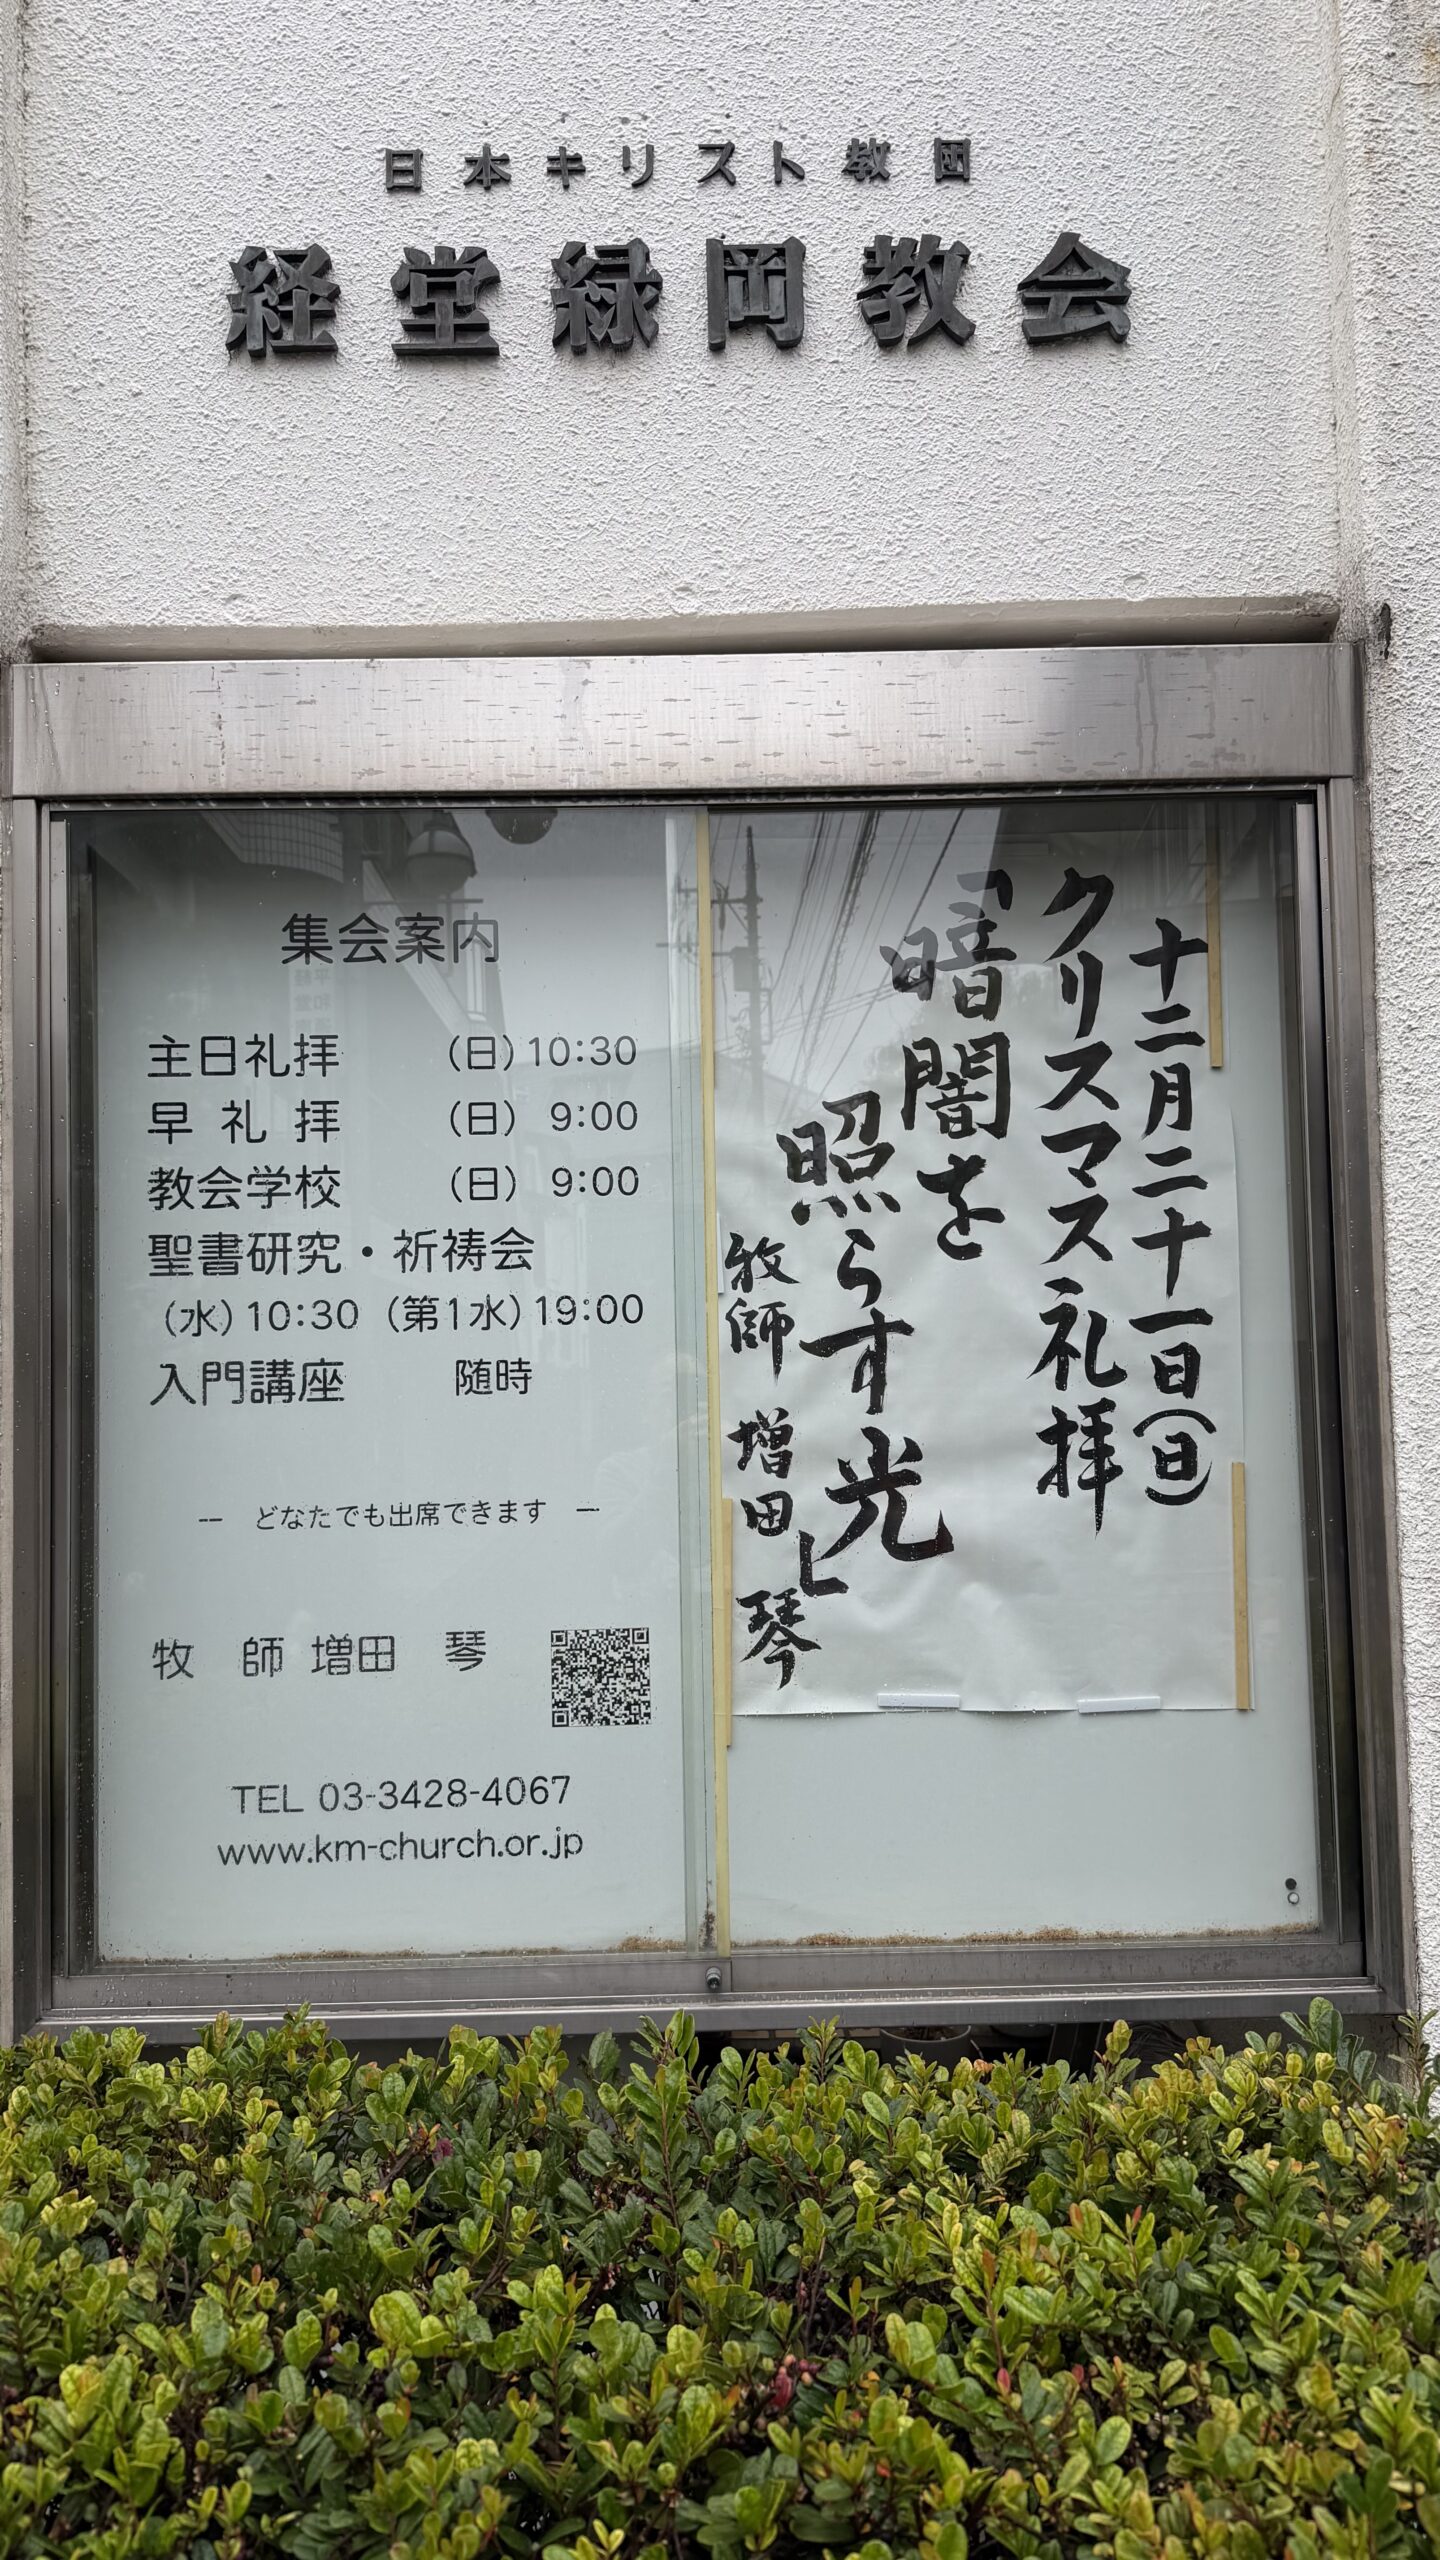 日本キリスト教団
経堂緑岡教会
集会案内
主日礼拝 (日)10:30
早礼拝 (日) 9:00
教会学校 (日) 9:00
聖書研究・祈祷会
(水)10:30 (第1水)19:00
入門講座 随時
-- どなたでも出席できます ー
牧師 増田 琴
TEL 03-3428-4067
www.km-church.or.jp
十二月二十一日(日)
クリスマス礼拝
「暗闇を
照らす光」
牧師 増田 琴